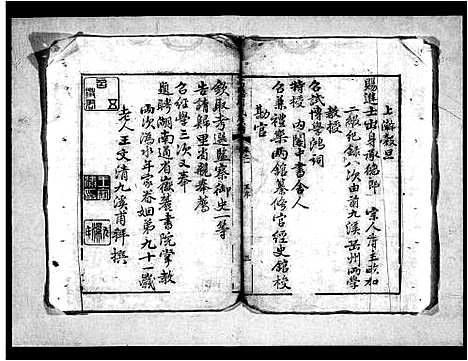 上澣穀旦
賜進士出身承德郎 宗人府主政加
二級紀錄八次由前九溪岳州兩學
教授
召試博學鴻詞
特授 內閣中書舍人
召兼禮樂兩館纂修官經史館校
勘官
欽取考選監察御史一等
告請歸里省觀奉薦
召經學三次又奉
題聘湖南通省嶽麓書院掌教
兩次溈水年家眷姻弟九十一歲
老人王文清九溪甫拜撰